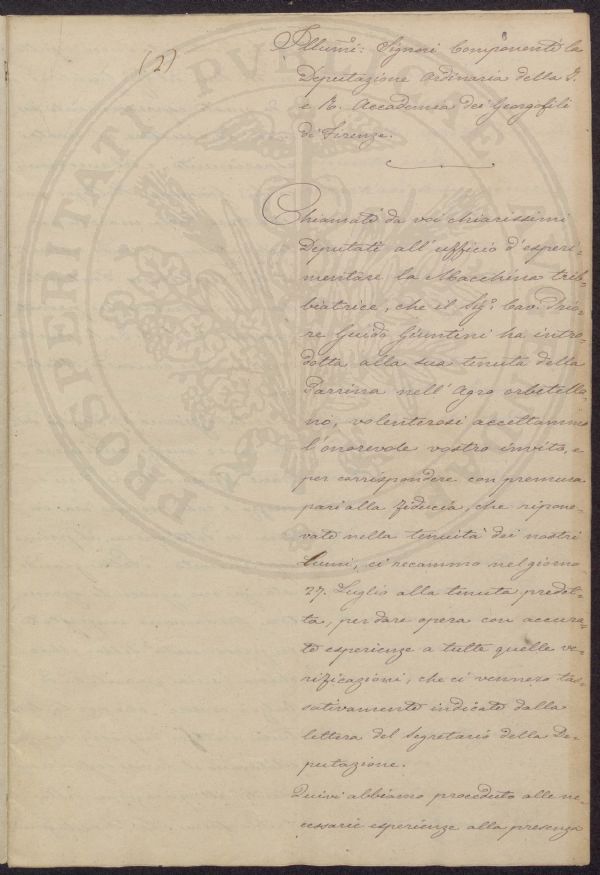 (2)
Illumi: Signori Componenti la
Deputazione Ordinaria della I.
e R. Accademia dei Georgofili
di Firenze.
Chiamati da voi chiarissimi
Deputati all'ufficio d'esperi-
mentare la Macchina treb-
biatrice, che il Sig.r Cav. Prio-
re Guido Giuntini ha intro-
dotta alla sua tenuta della
Parrina nell'Agro orbetella-
no, volenterosi accettammo
l'onorevole vostro invito, e
per corrispondere con premura
pari alla fiducia, che ripone-
vate nella tenuità dei nostri
Lumi, ci recammo nel giorno
27. Luglio alla tenuta predet-
ta, per dare opera con accura-
te esperienze a tutte quelle ve-
rificazioni, che ci vennero tas-
sativamente indicate dalla
lettera del Segretario della De-
putazione.
Quivi abbiamo proceduto alle ne-
cessarie esperienze alla presenza
PROSPERITATI PVBLICAE AV